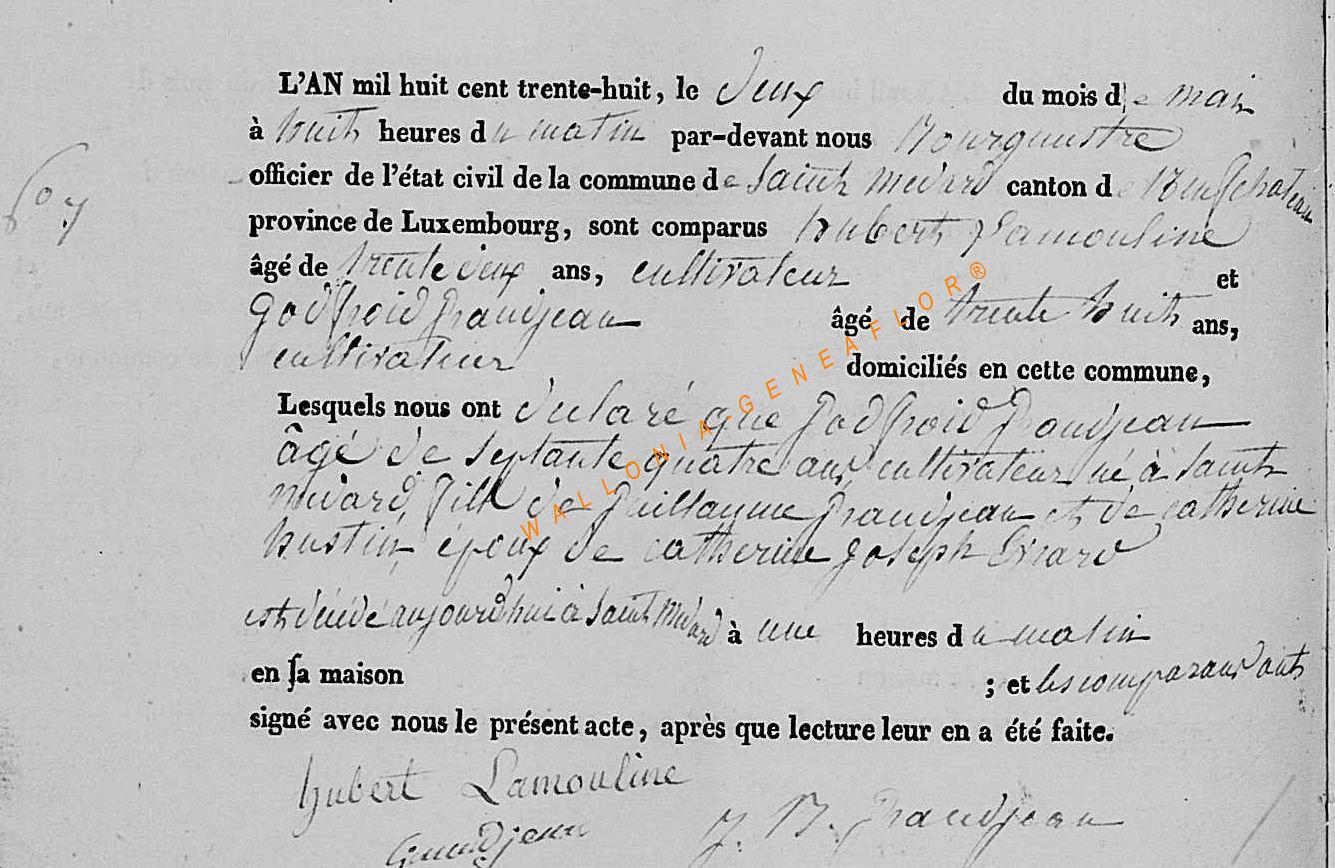 L'AN mil huit cent trente-huit, le deux du mois de mai
à huit heures du matin par-devant nous Bourgmestre
officier de l'état civil de la commune de Saint Médard canton de Neufchateau
province de Luxembourg, sont comparus hubert Lamouline
âgé de trente deux ans, cultivateur et
godfroid grandjean âgé de trente huit ans,
cultivateur domiciliés en cette commune,
Lesquels nous ont déclaré que godfroid grandjean
âgé de septante quatre ans cultivateur né à Saint
médard, fils de guillaume grandjean et de catherine
hustin, époux de catherine joseph
est décédé aujourdhui à Saint Médard à une heures du matin
en sa maison ; et les comparans ont
signé avec nous le présent acte, après que lecture leur en a été faite.
hubert Lamouline
Grandjean J. B. Grandjean
WALLONIA-GENEAFLOR®